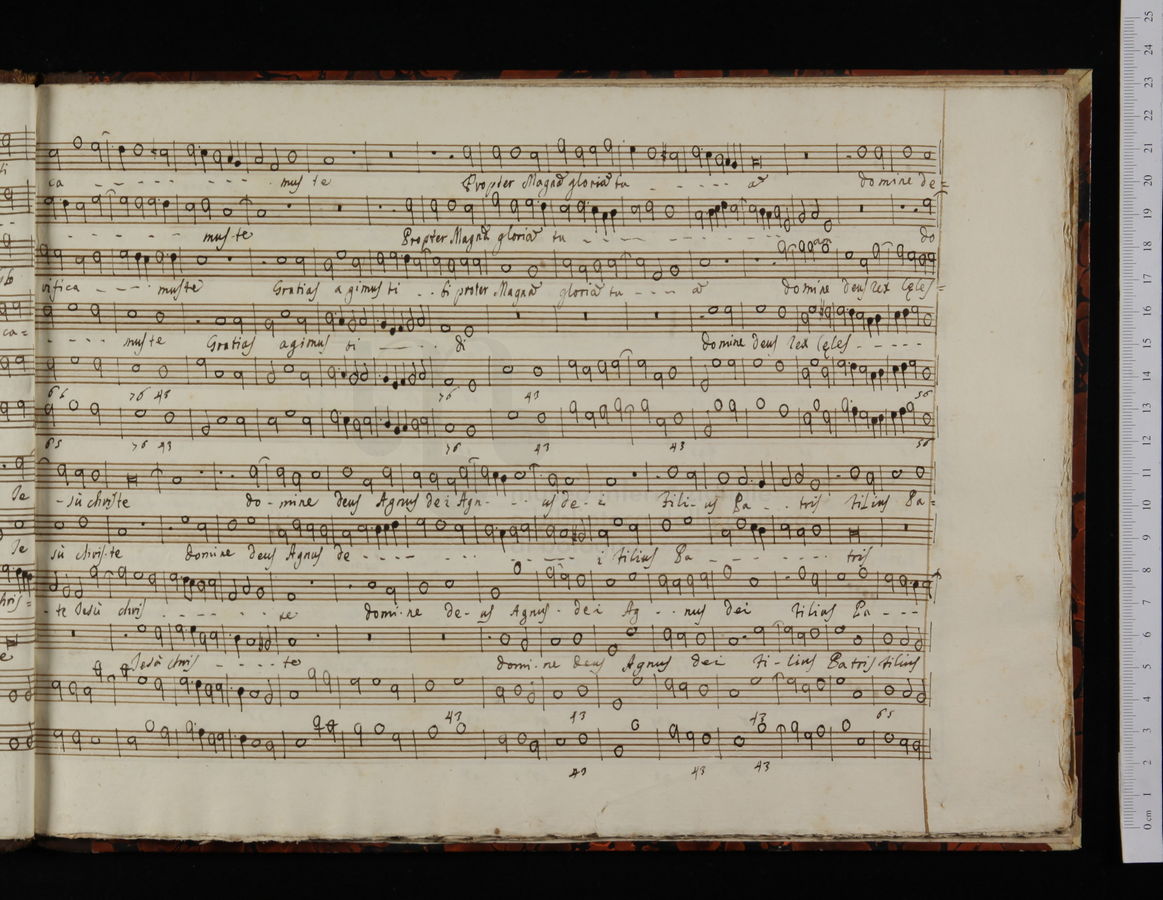 ca - - - - - - - - mus te Propter Magnā gloriā tu - - - - - ā domine de=
- - - - - - - mus-te Propter Magnā gloriā tu - - - - - - - do
vifica - - - muste Gratias agimus ti - - bi propter Magnā gloriā tu - - - ā domine deus rex cęles=
- - - - muste Gratias agimus ti - - - di domine deus rex cęles - - - - -
6 6 76 43 76 43 56
65 76 43 76 43 43 56
Je -sù christe do-mine deus Agnus dei Agn- - - us de-i fili-us Pa - - tris filius Pa=
Je sù chris-te domine deus Agnus de - - - - - - - - - i filius Pa - - - - - - tris
chris= te Jesù chris - - - - - te domi-ne de-us Agnus dei Ag - - nus dei filius Pa - - -
e Jesù chris - - - - te domi-ne deus Agnus dei fi-lius Patris filius
43 43 43 65
43 43 43